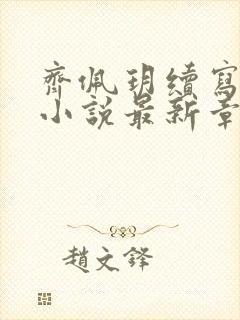 齊佩玥續寫
小說最新章
趙文鋒